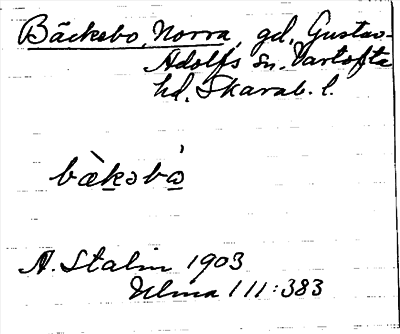 Bäckebo, Norra, gd, Gustav-
Adolfs sn. Vartofta
hd. Skarab. l.
bæ̀kəbò
A. Stalin 1903
Ulma 111:383